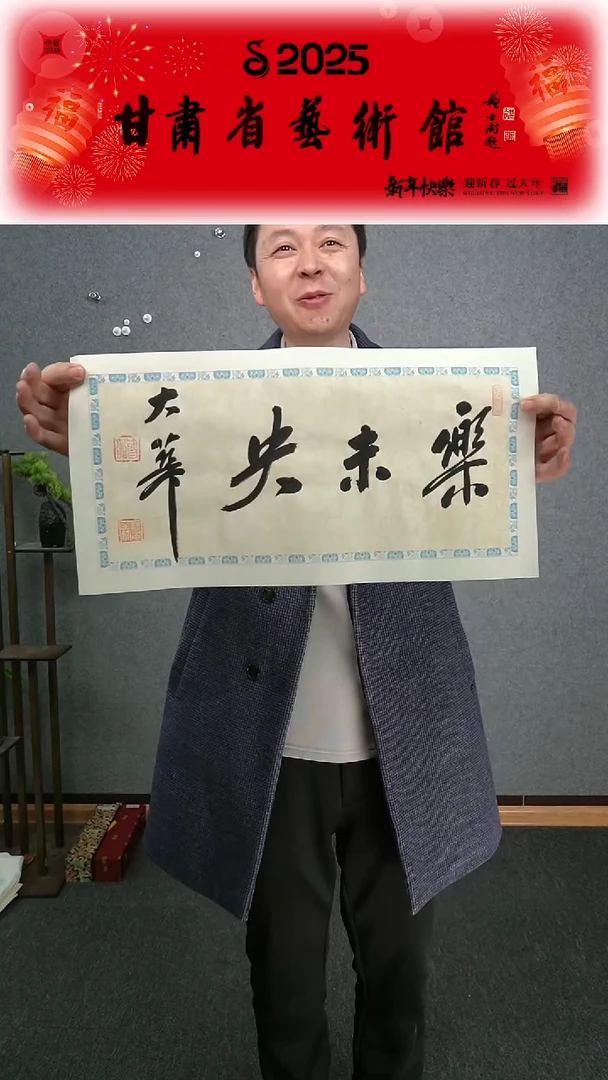 2025
甘肅省藝術館
新年快樂 迎新春 过大年
樂未央
大華
福
福